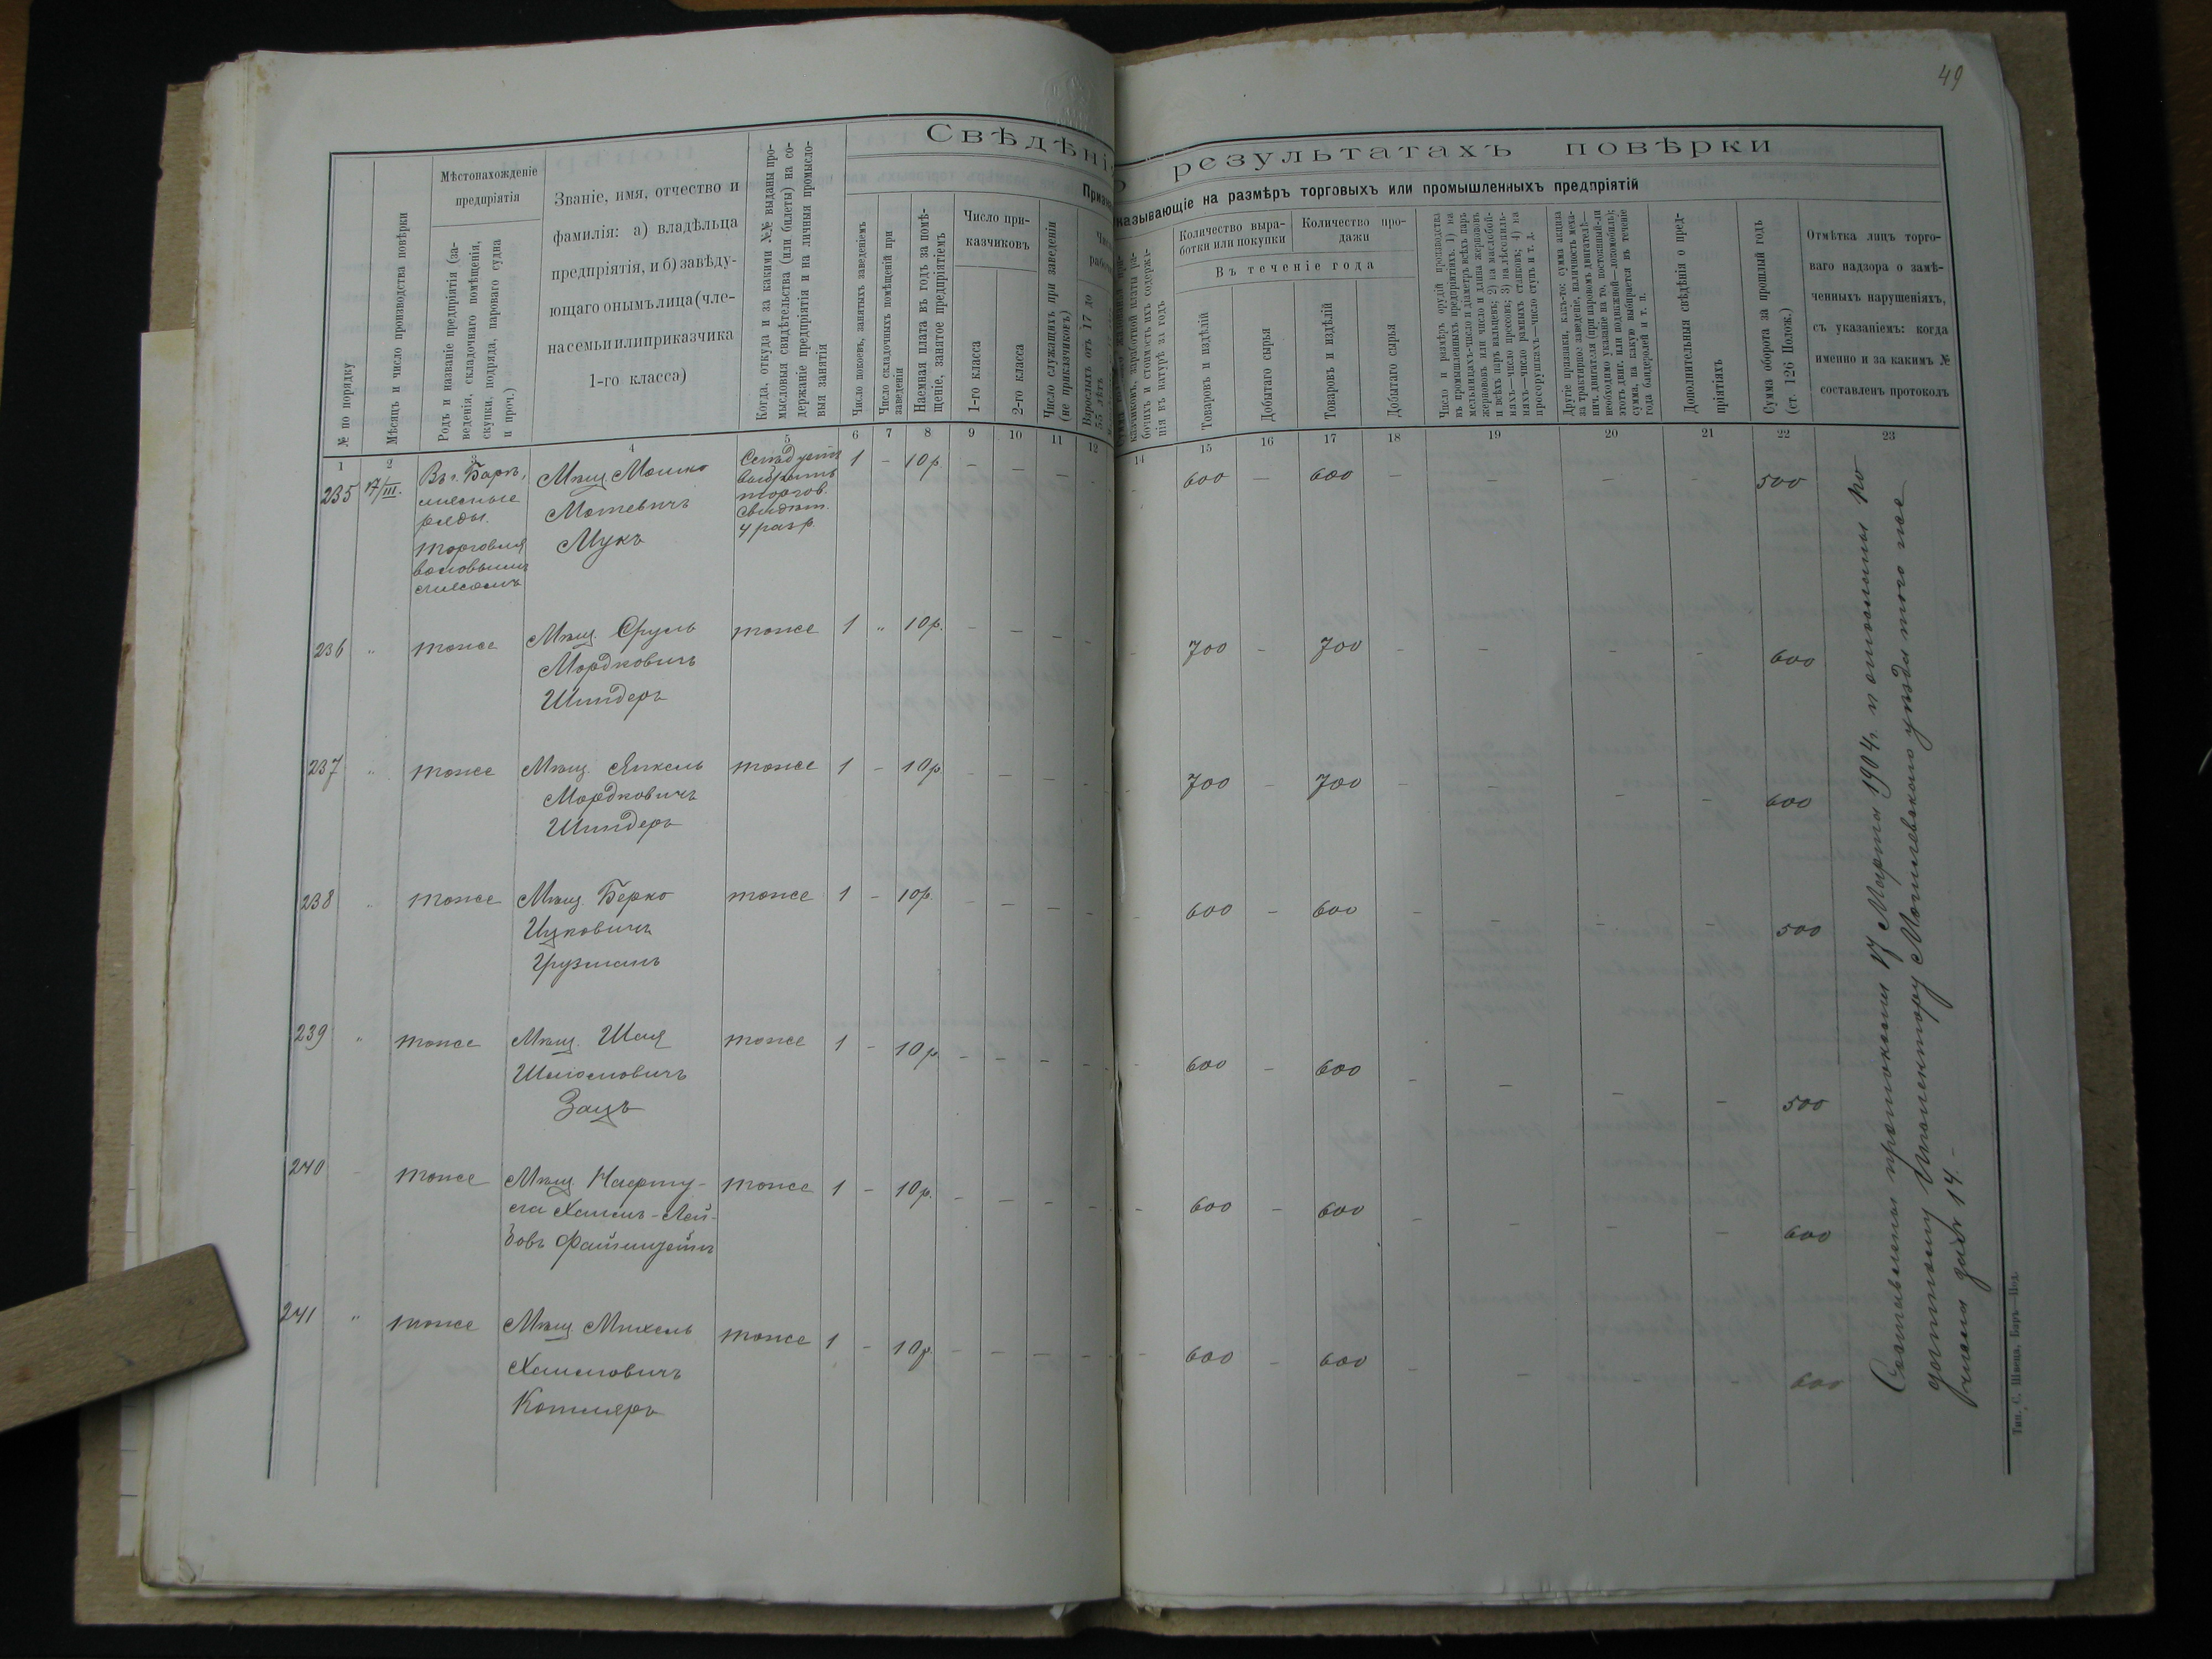 49
Свѣдѣні
о результатахъ повѣрки
Призна
казывающіе на размѣръ торговыхъ или промышленныхъ предпріятій
№ по порядку
Мѣсяцъ и число производства повѣрки
Мѣстонахожденіе
предпріятія
Родъ и названіе предпріятія (за-
веденія, складочнаго помѣщенія,
скупки, подряда, парового судна
и проч.)
Званіе, имя, отчество и
фамилія: а) владѣльца
предпріятія, и б) завѣду-
ющаго онымъ лица (чле-
на семьи или приказчика
1-го класса)
Когда, откуда и за какими №№ выданы про-
мысловыя свидѣтельства (или билеты) на со-
держаніе предпріятія и на личныя промысло-
выя занятія
Число покоевъ, занятыхъ заведеніемъ
Число складочныхъ помѣщеній при
заведеніи
Наемная плата въ годъ за помѣ-
щеніе, занятое предпріятіемъ
Число при-
казчиковъ
1-го класса
2-го класса
Число служащихъ при заведеніи
(не приказчиковъ)
Взрослыхъ отъ 17 до
казчиковъ, заработной платы ра-
бочихъ и стоимость ихъ содержа-
нія въ натурѣ за годъ
Количество выра-
ботки или покупки
Количество про-
дажи
Въ теченіе года
Товаровъ и издѣлій
Добытаго сырья
Товаровъ и издѣлій
Добытаго сырья
Число и размѣръ орудій производства
въ промышленныхъ предпріятіяхъ: 1) на
мельницахъ—число и діаметръ всѣхъ паръ
жернововъ или число и длина жернововъ
и всѣхъ паръ вальцевъ; 2) на маслобой-
няхъ—число прессовъ; 3) на лѣсопиль-
няхъ—число рамныхъ станковъ; 4) на
просорушкахъ—число ступъ и т. д.
Другіе признаки, какъ-то: сумма акциза
за трактирное заведеніе, наличность меха-
нич. двигателя (при паровомъ двигателѣ—
необходимо указаніе на то, постоянный-ли
этотъ двиг. или подвижной—локомобиль);
сумма, на какую выбирается въ теченіе
года бандеролей и т. п.
Дополнительныя свѣдѣнія о пред-
пріятіяхъ
Сумма оборота за прошлый годъ
(ст. 126 Полож.)
Отмѣтка лицъ торго-
ваго надзора о замѣ-
ченныхъ нарушеніяхъ,
съ указаніемъ: когда
именно и за какимъ №
составленъ протоколъ
1 2 3 4 5 6 7 8 9 10 11 12 14 15 16 17 18 19 20 21 22 23
235 17/III. Въ г. Барѣ, Мѣщ. Мошко 1 – 10 р. – – – – – 600 – 600 – – – – 500
мясные
ряды.
торговля
воловьимъ
мясомъ
Мотевичъ
Мукъ
торгов.
4 разр.
236 " тоже Мѣщ. Сруль тоже 1 " 10 р. – – – – – 700 – 700 – – – – 600
Мордковичъ
Шиндеръ
237 " тоже Мѣщ. Янкель тоже 1 – 10 р. – – – – – 700 – 700 – – – – 600
Мордковичъ
Шиндеръ
238 " тоже Мѣщ. Берко тоже 1 – 10 р. – – – – – 600 – 600 – – – – 500
Ицковичъ
Грузманъ
239 " тоже Мѣщ. Шая тоже 1 – 10 р. – – – – – 600 – 600 – – – – 500
Шлиомовичъ
Зацъ
240 – тоже Мѣщ. Нафту- тоже 1 – 10 р. – – – – – 600 – 600 – – – – 600
ла Хаимъ-Лей-
бовъ Файнштейнъ
241 " тоже Мѣщ. Михель тоже 1 – 10 р. – – – – – 600 – 600 – – – – 600
Хаимовичъ
Котляръ
Составлены протоколы 17 Марта 1904 г. и отосланы По
датному Инспектору Могилевскаго уѣзда того же
числа за № 14.–
Тип. С. Швеца, Баръ—Под.